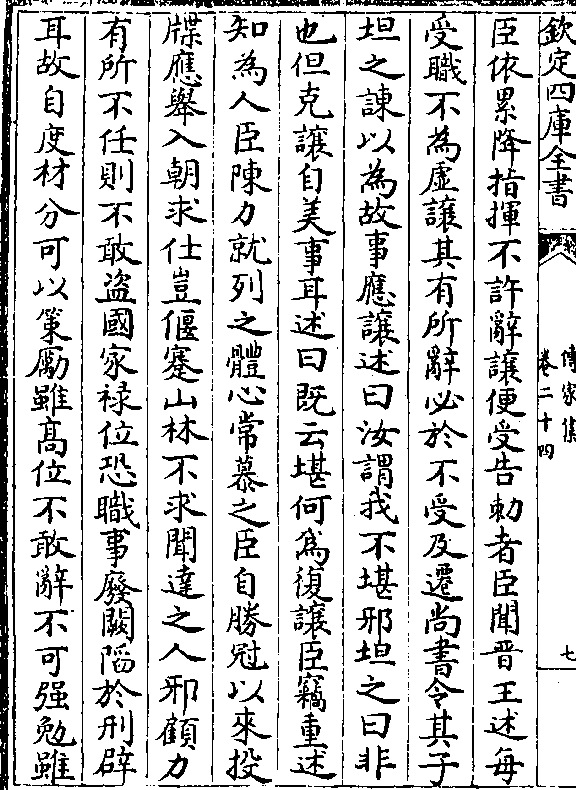 欽定四庫全書
傳家集
卷二十四
七
臣依累降指揮不許辭讓便受告勅者臣聞晋王述每
受職不為虚讓其有所辭必於不受及遷尚書令其子
坦之諫以為故事應讓述曰汝謂我不堪邪坦之曰非
也但克讓自美事耳述曰既云堪何為復讓臣竊重述
知為人臣陳力就列之體心常慕之臣自勝冠以來投
牒應舉入朝求仕豈偃蹇山林不求聞達之人邪顧力
有所不任則不敢盗國家禄位恐職事廢闕陷於刑辟
耳故自度材分可以策勵雖高位不敢辭不可强勉雖